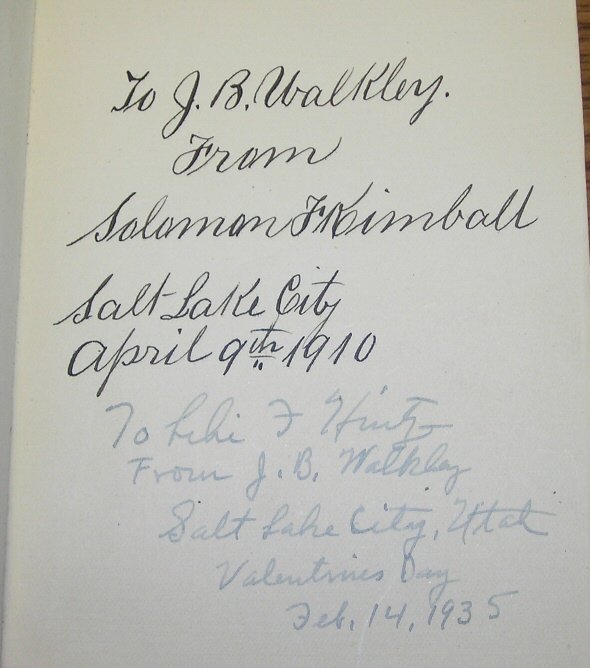 To J. B. Walkley.
From
Solomon F Kimball
Salt Lake City
April 9th 1910
To Lehi F Hintz
From J. B. Walkley
Salt Lake City, Utah
Valentines Day
Feb. 14, 1935